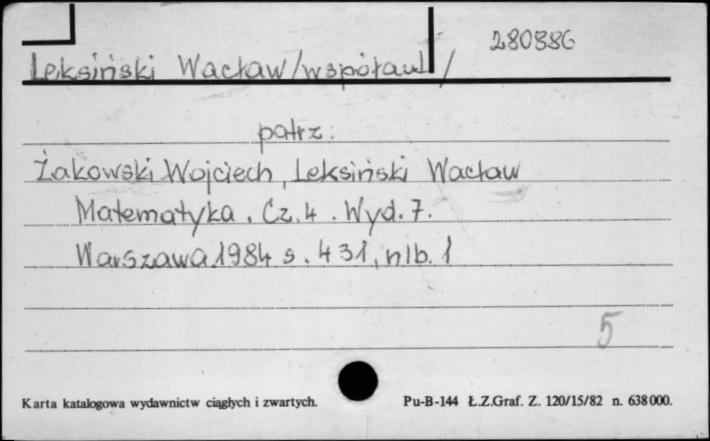 280886
Leksiński Wacław /współaut/
patrz:
Żakowski Wojciech, Leksiński Wacław
Matematyka. Cz. 4. Wyd. 7.
Warszawa 1984 s. 431, nlb. 1
5
Karta katalogowa wydawnictw ciągłych i zwartych.
Pu-B-144 Ł.Z.Graf. Z. 120/15/82 n. 638000.